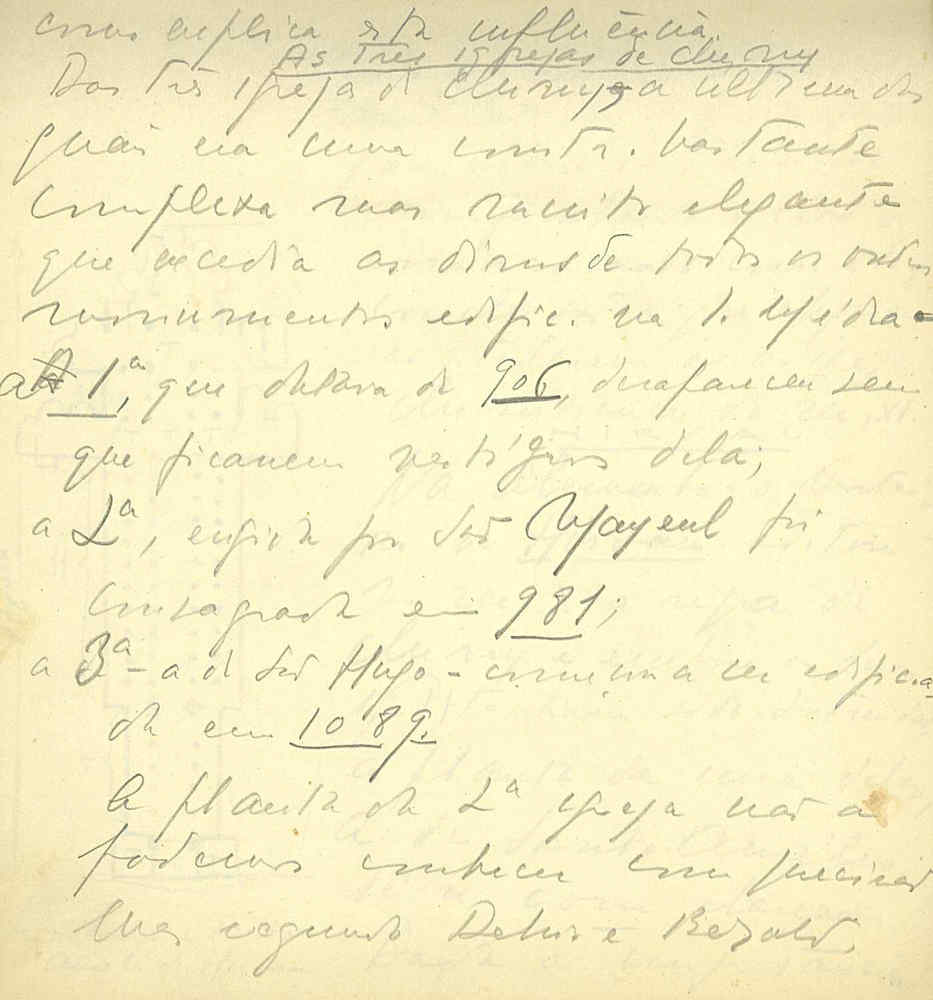 como explica esta influência.
As Três igrejas de Cluny
Das três igrejas de Cluny, a última das
quais era uma constr. bastante
complexa mas muito elegante
que excedia as dimens de todos os outros
monumentos edific. na I. Média -
a 1ª, que datava de 906, desapareceu sem
que ficassem vestígios dela;
a 2ª, erigida por São Mayeul foi
consagrada em 981;
a 3ª - a de São Hugo - começou a ser edifica-
da em 1089.
A planta da 2ª igreja não a
podemos conhecer com precisão
Mas segundo Dehio e Bezold,